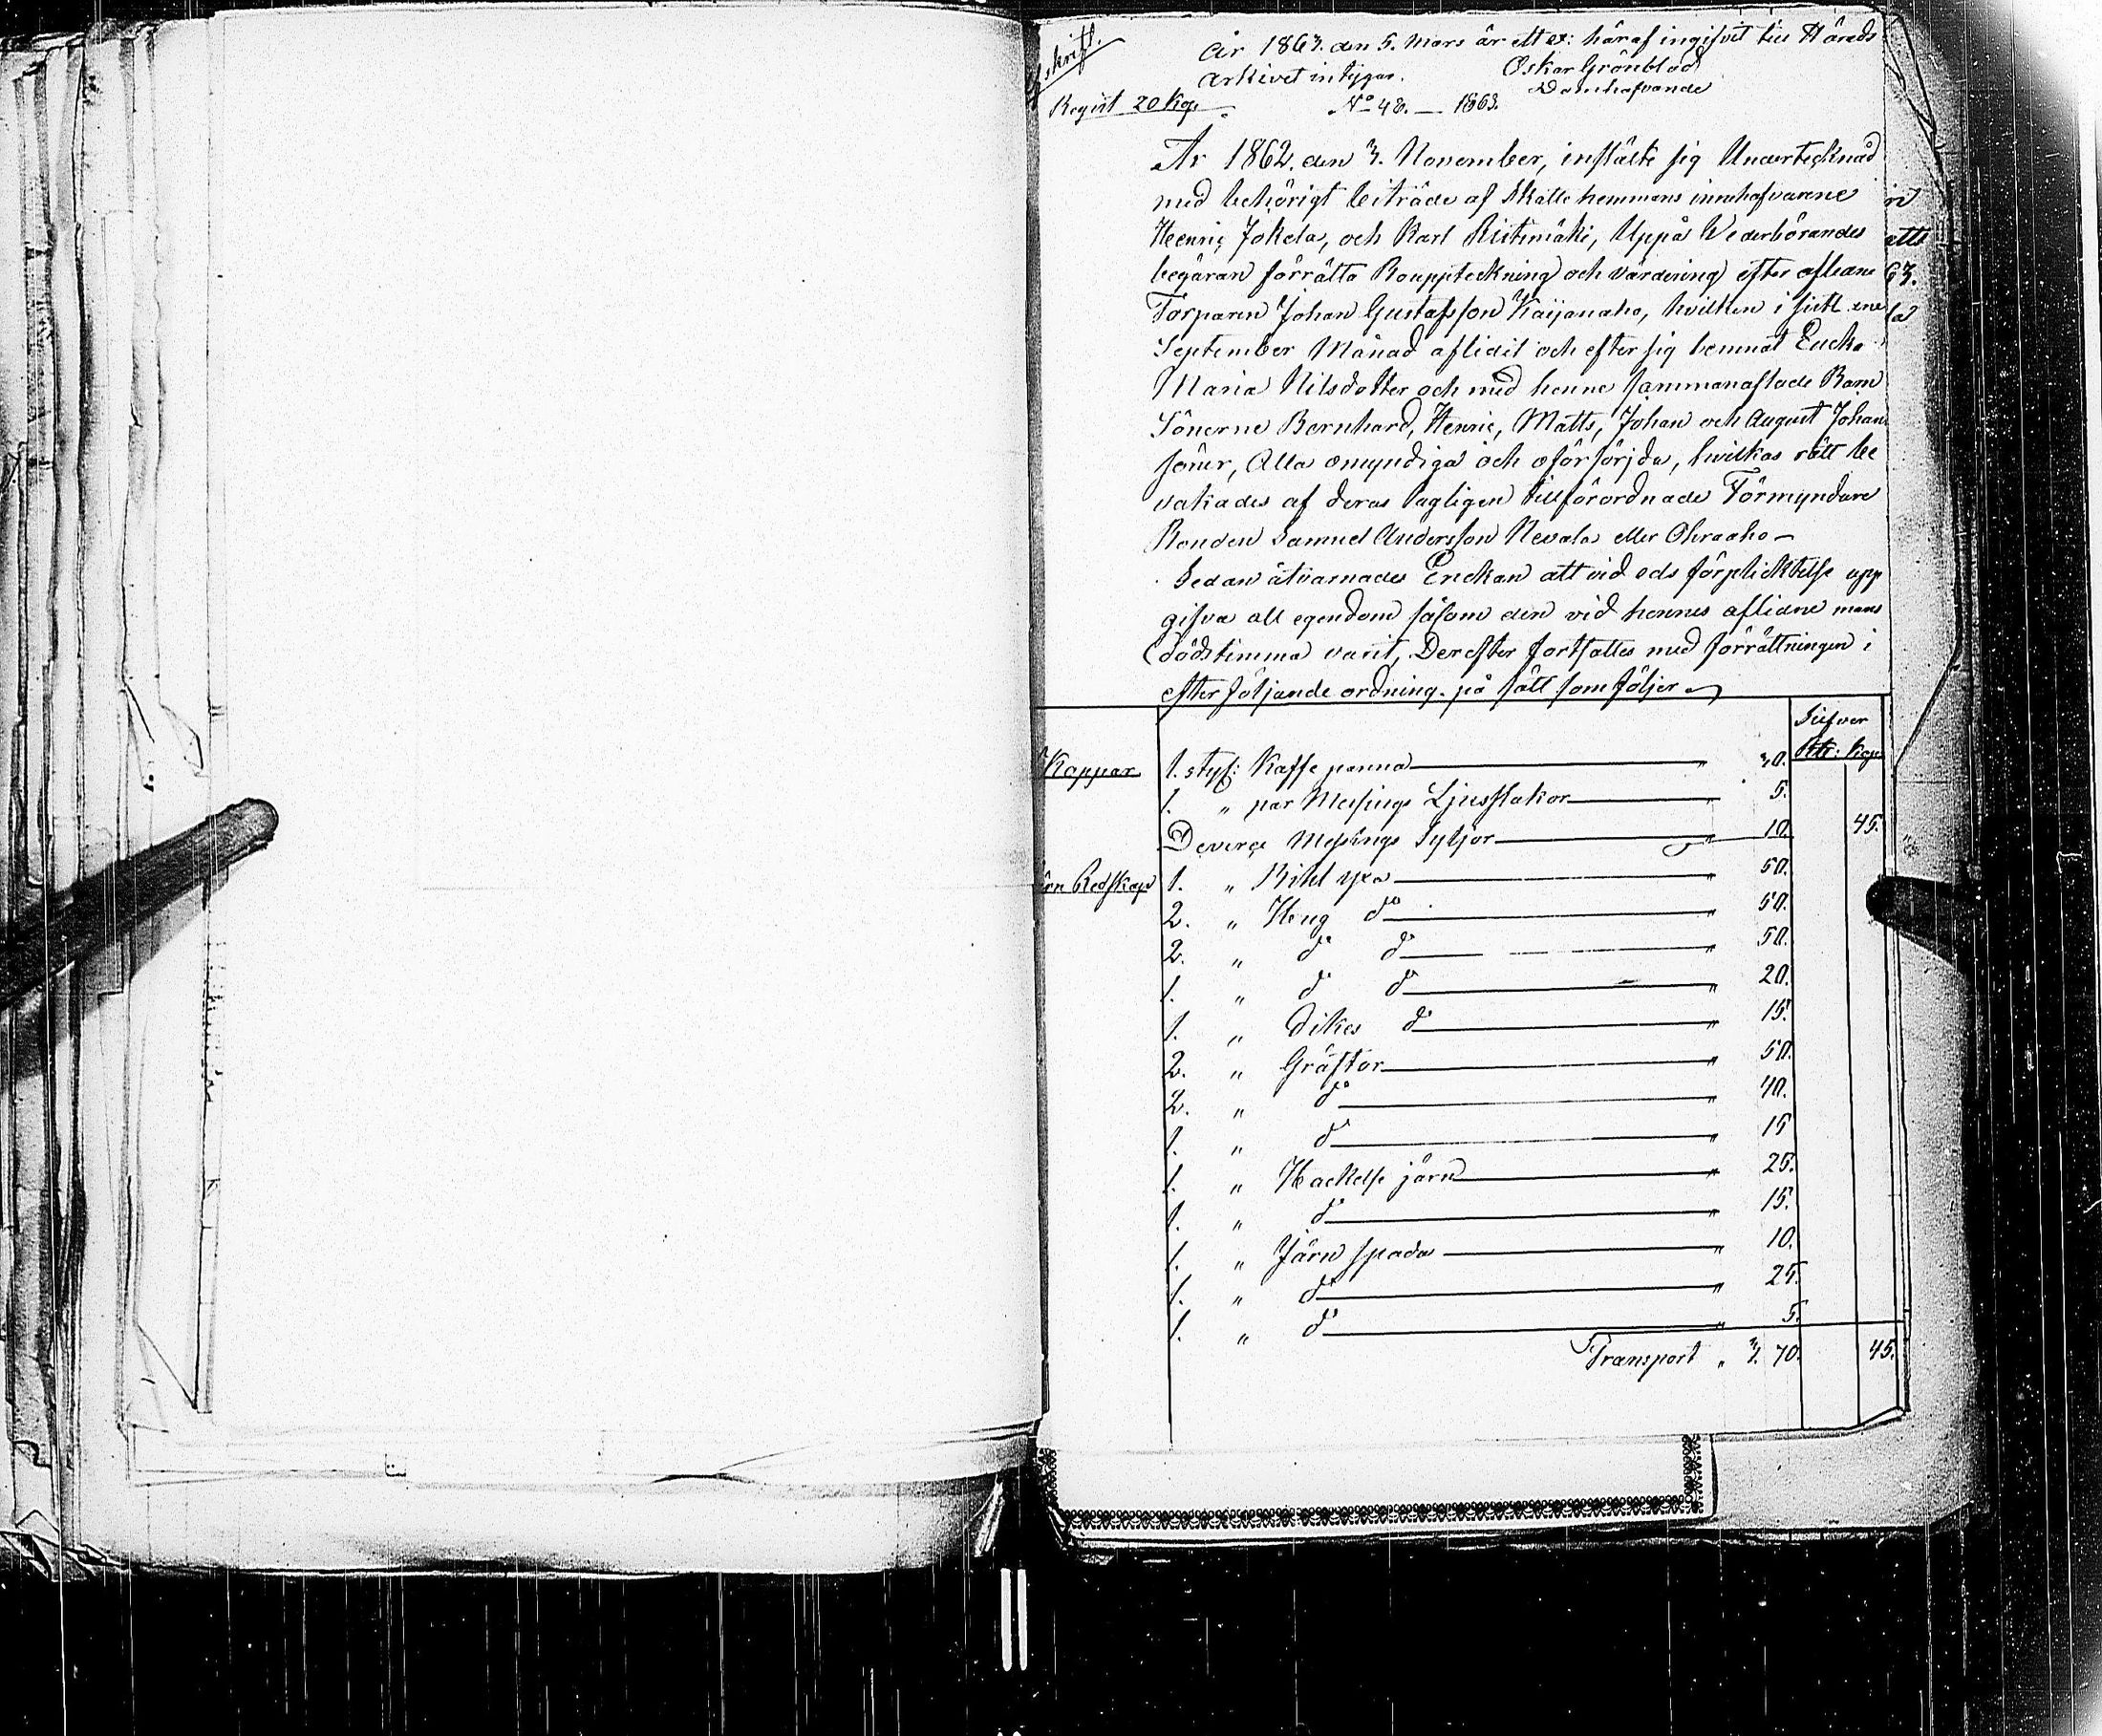 Afskrift.
År 1863. den 5. Mars är ett ex: häraf ingifvit till Härads
Arkivet intygar. Oskar Grönblad
Domhafvande
Regist 20 Kop. No 48. — 1863.
År 1862. den 3. November, instälte sig Undertecknad
med behörigt biträde af Skatte hemmans innehafvarene
Henric Jokela, och Karl Ristimäki, Uppå Vederbörandes
begäran förrätta Bouppteckning och värdering efter aflidne
Torparen Johan Gustafsson Kaijanaho, hvilken i sistl.
September Månad aflidit och efter sig lemnat Encka
Maria Nilsdotter och med henne sammanaflade Barn
Sönerne Bernhard, Henric, Matts, Johan och August Johans
söner, Alla omyndiga och oförsörjda, hvilkas rätt be
vakades af deras lagligen tillförordnade Förmyndare
Bonden Samuel Andersson Nevala eller Ohraaho —
Sedan åtvarnades Enckan att vid eds förplicktelse upp
gifva all egendom såsom den vid hennes aflidne mans
dödstimma varit, Derefter fortsattes med förrättningen i
efter följande ordning. på sätt som följer
Silfver
Rbl: Kop.
Koppar 1. styk: Kaffe panna — " 30.
1. " par Messings Ljusstakor — " 5.
Deverse Messings Sykjor — " 10. 45.
Järn Redskap 1. " Bihl yxa — " 50.
2. " Hug do — " 50.
2. " do do — " 50.
1. " do do — " 20.
1. " Dikes do — " 15.
2. " Gräftor — " 50.
2. " do — " 40.
1. " do — " 15
1. " Hackelse järn — " 25.
1. " do — " 15.
1. " Järn spada — " 10.
1. " do — " 25.
1. " do — " 5.
Transport " 3. 70. 45.